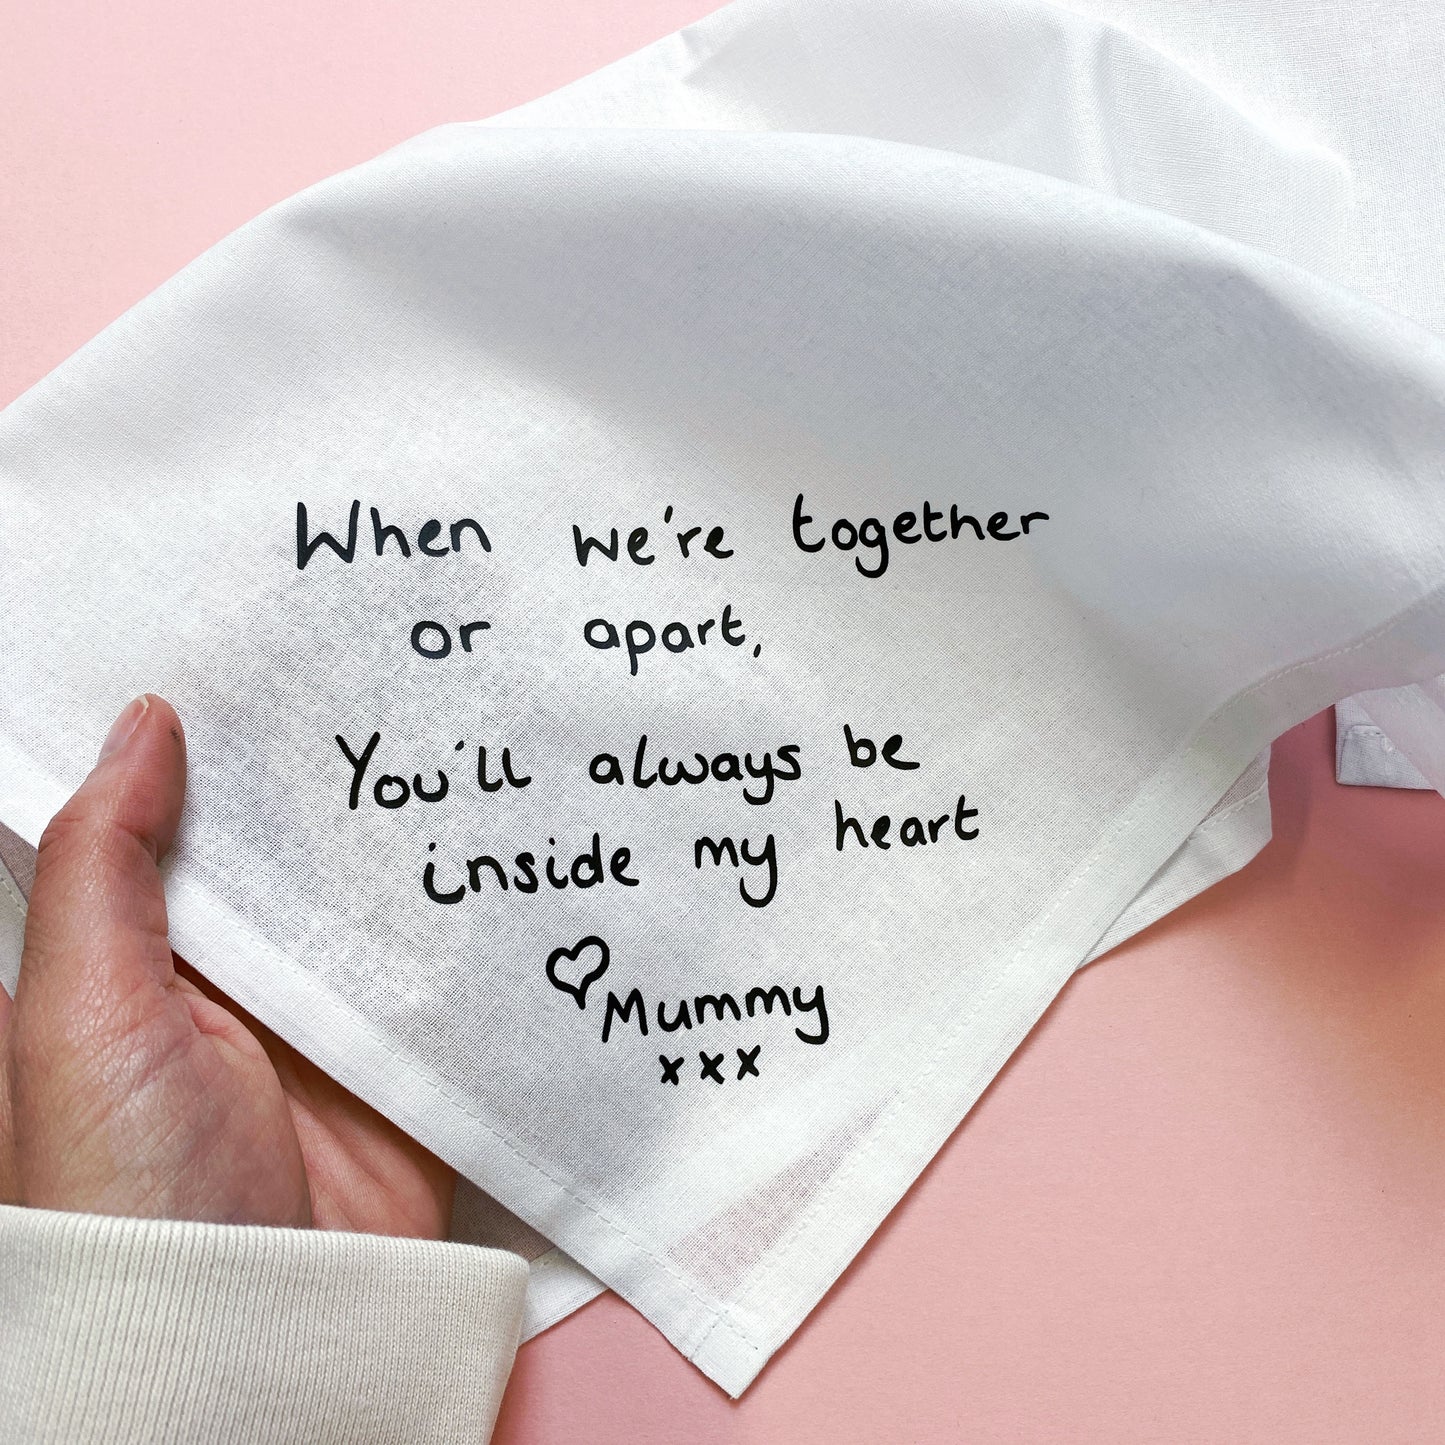 When we're together
or apart,
You'll always be
inside my heart
♡ Mummy
xxx